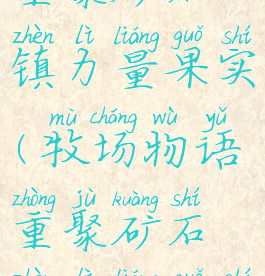 zhèn lì liáng guǒ shí
镇力量果实
mù cháng wù yǔ
(牧场物语
zhòng jù kuàng shí
重聚矿石